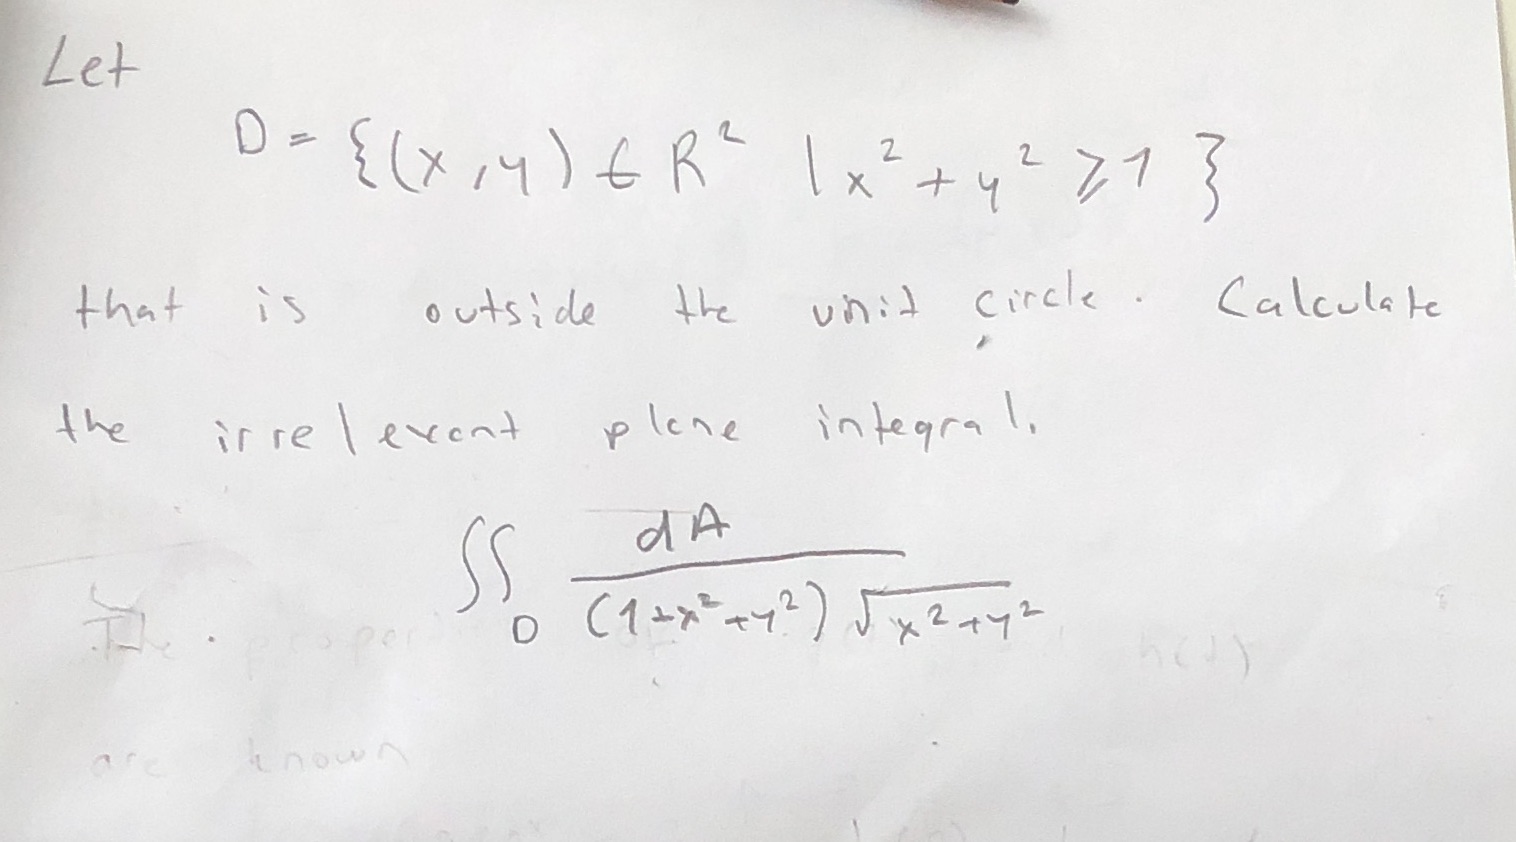 Let
D = {(x,y) ∈ R² | x² + y² ⩾ 1 }
that is outside the unit circle. Calculate
the irrelevent plane integral.
∬_D dA / ((1+x²+y²) √(x²+y²))
The proper h(t)
are known